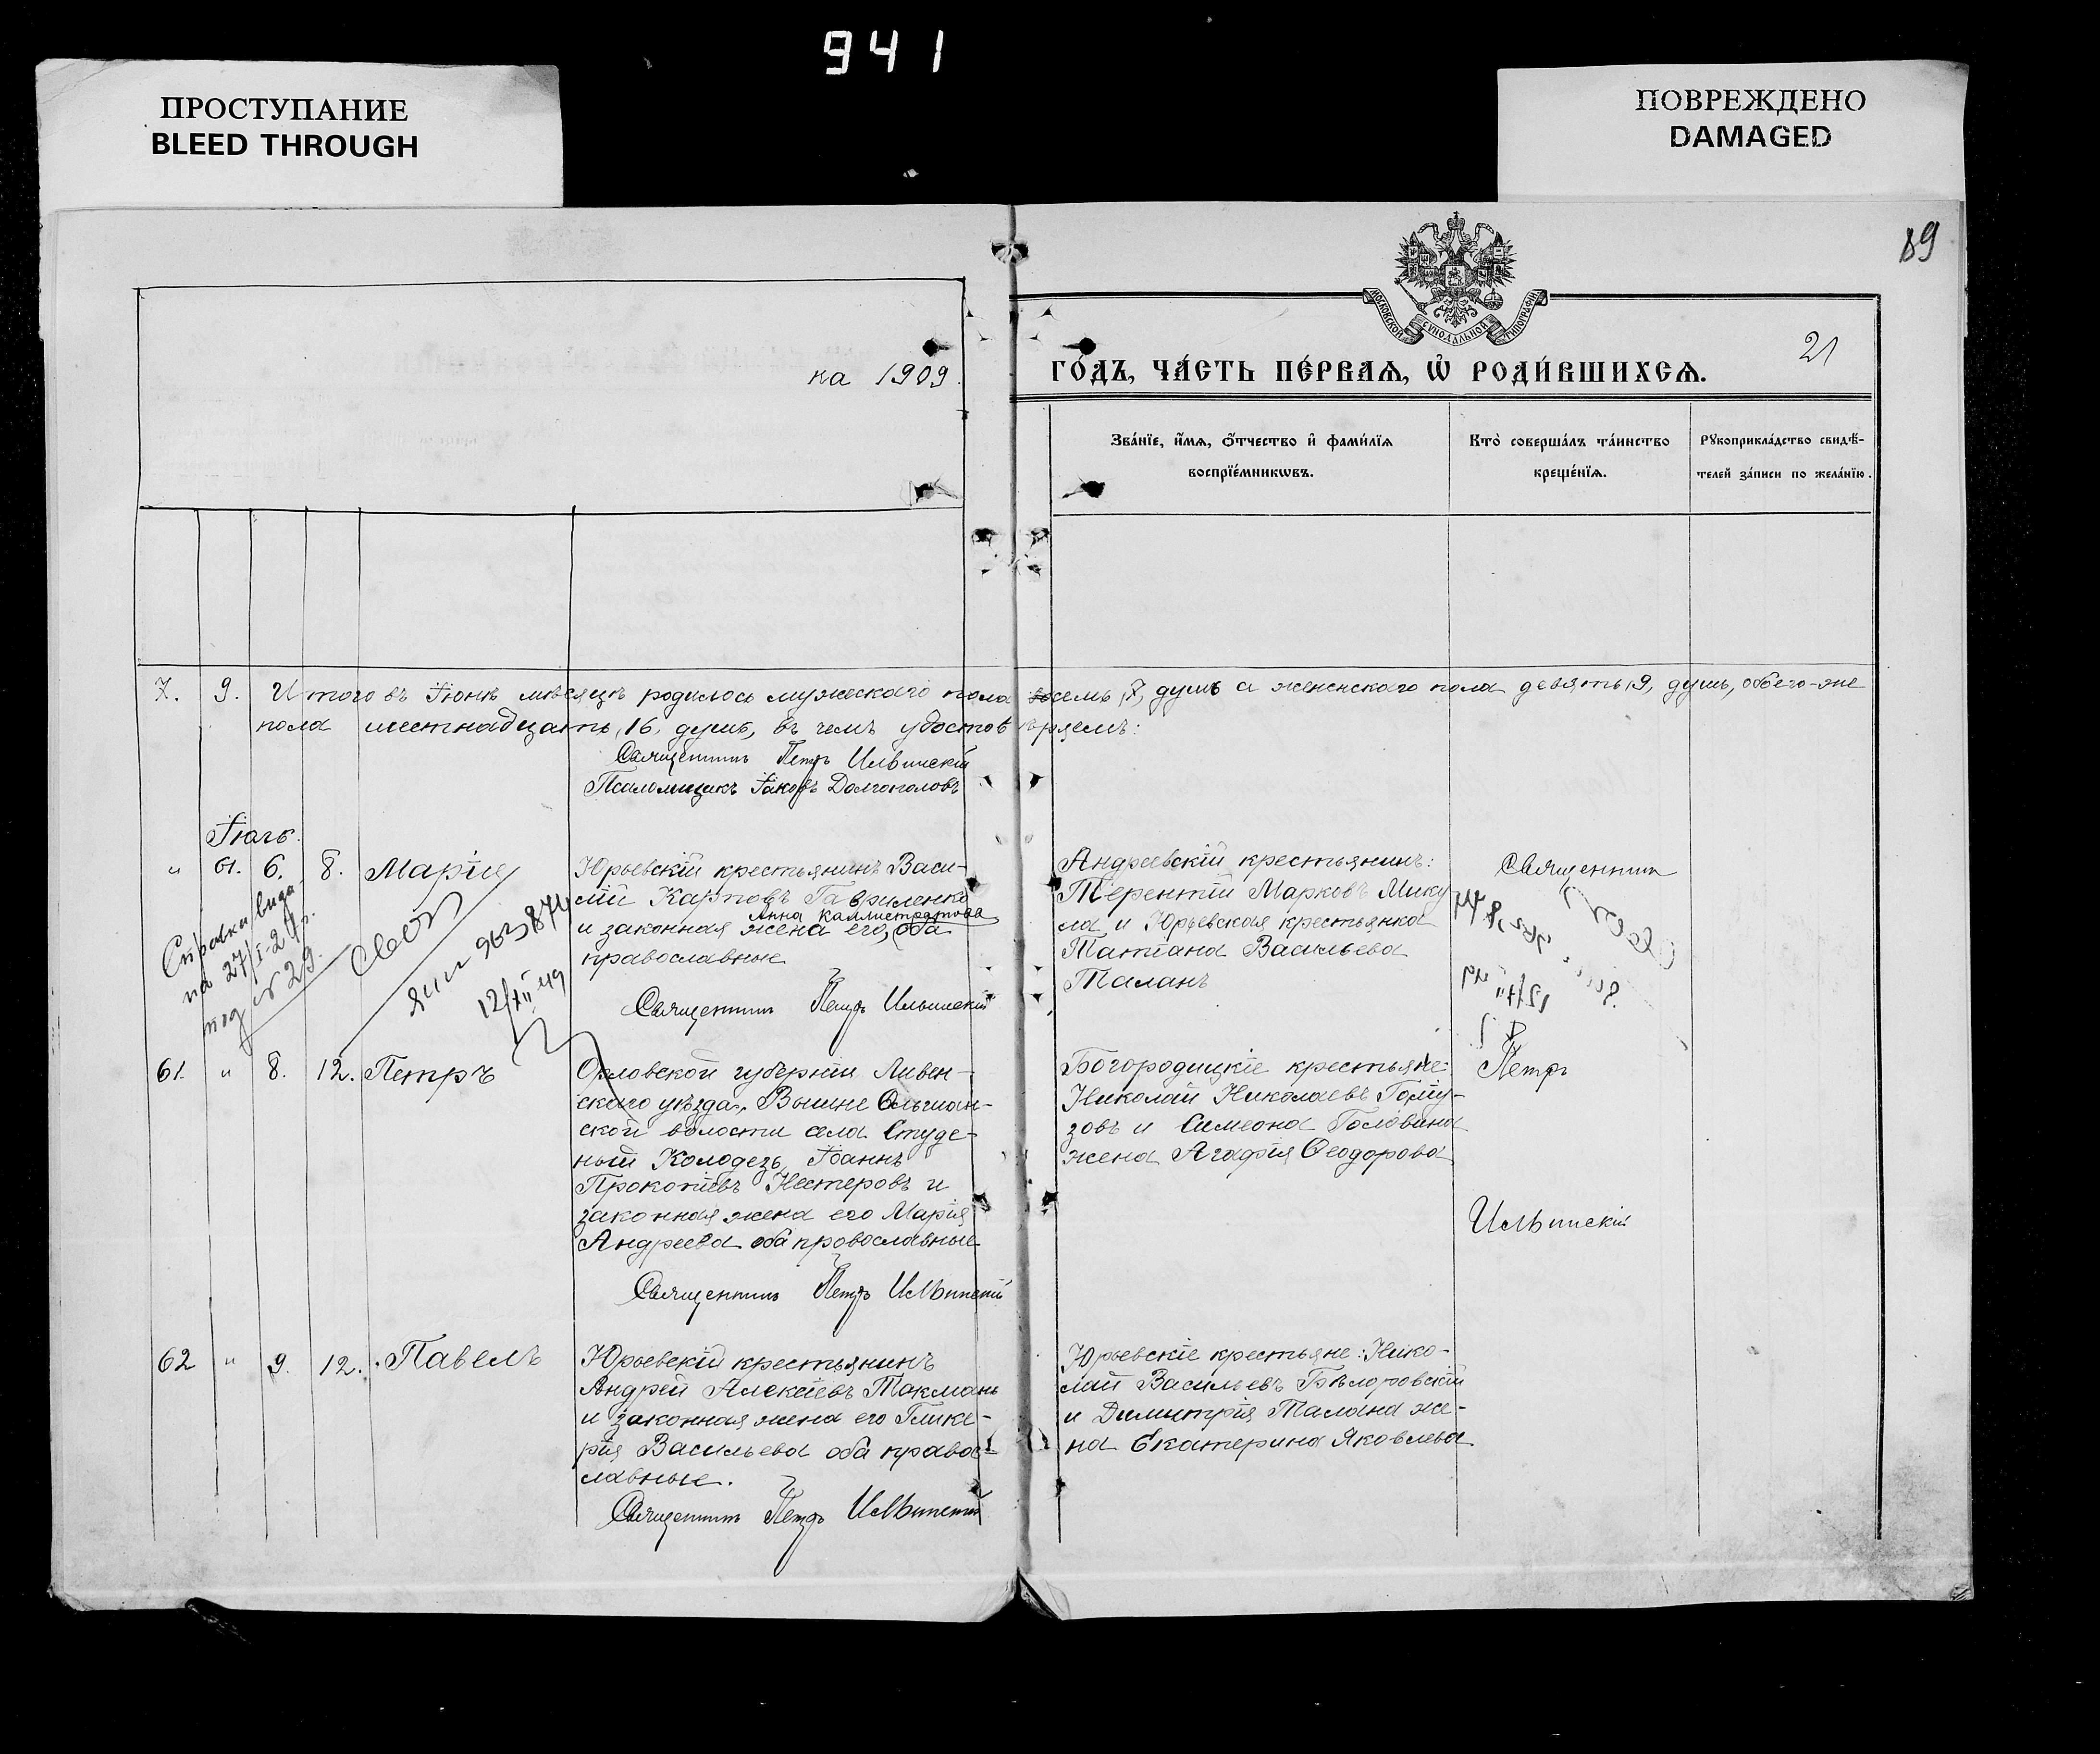 941
ПРОСТУПАНИЕ
BLEED THROUGH
ПОВРЕЖДЕНО
DAMAGED
89
МОСКОВСКОЙ СѴНОДАЛЬНОЙ ТИПОГРАФІИ
21
на 1909
ГО́ДЪ, ЧА́СТЬ ПЕ́РВАѦ, Ѡ҆ РОДИ́ВШИХСѦ.
Зва́нїе, и҆́мѧ, ѻ҆́тчество и҆ фами́лїѧ
воспрїе́мникѡвъ.
Кто̀ соверша́лъ та́инство
креще́нїѧ.
Рꙋкоприкла́дство свидѣ́-
телей за́писи по жела́нїю.
7. 9. Итого въ Іюнѣ мѣсяцѣ родилось мужескаго пола семь, 7, душъ а женскаго пола девять, 9, душъ, обоего-же
пола шестнадцать, 16, душъ, въ чемъ удостовѣряемъ:
Священникъ Петръ Ильинскій
Псаломщикъ Іаковъ Долгополовъ
Іюль.
" 61. 6. 8. Марія
Юрьевскій крестьянинъ Васи-
лій Карповъ Гавриленко
Анна Каллистратова
и законная жена его, оба
православные
Священникъ Петръ Ильинскій
Андреевскій крестьянинъ:
Терентій Марковъ Мику
ла и Юрьевская крестьянка
Татіана Васильева
Таланъ
Священникъ
Справка выда
на 27/I-2
под № 29.
ЯИИ 963874
12/XII 49
61. " 8. 12. Петръ
Орловской губерніи Ливен-
скаго уѣзда, Вышне Ольшан-
ской волости села Студе-
ный Колодезь, Іоаннъ
Прокопіевъ Нестеровъ и
законная жена его Марія
Андреева оба православные
Священникъ Петръ Ильинскій
Богородицкіе крестьяне:
Николай Николаевъ
зовъ и Симеона Головина
жена Агафія Ѳеодорова
Петръ
Ильинскій
62 " 9. 12. Павелъ
Юрьевскій крестьянинъ
Андрей Алексіевъ Токмань
и законная жена его Глике-
рія Васильева оба правос-
лавные.
Священникъ Петръ Ильинскій
Юрьевскіе крестьяне: Нико-
лай Васильевъ Бѣлоровскій
и Димитрія Талана же-
на Екатерина Яковлева